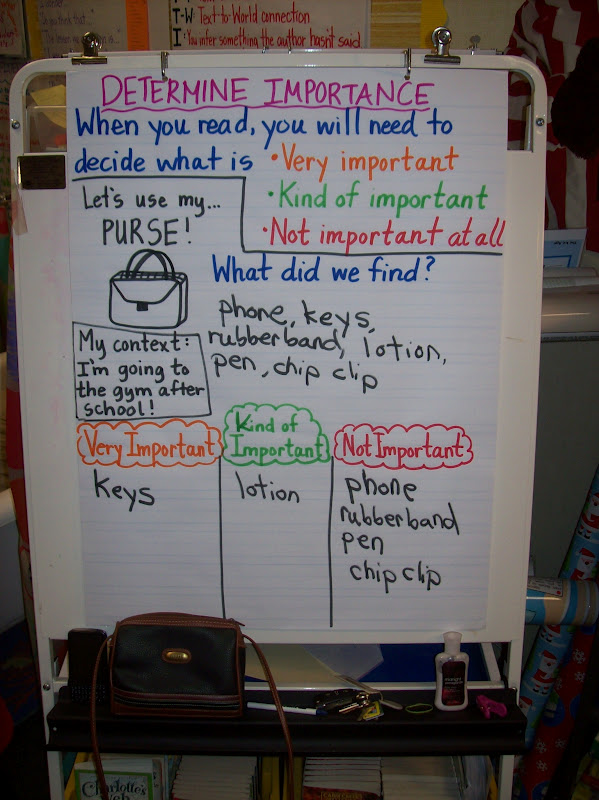 T-W Text-to-World connection
I: You infer something the author hasn't said
DETERMINE IMPORTANCE
When you read, you will need to
decide what is
• Very important
• Kind of important
• Not important at all
Let's use my...
PURSE!
What did we find?
phone, keys,
rubberband, lotion,
pen, chip clip
My context:
I'm going to
the gym after
school!
Very Important
Kind of
Important
Not Important
keys
lotion
phone
rubberband
pen
chip clip
Charlotte's
Web